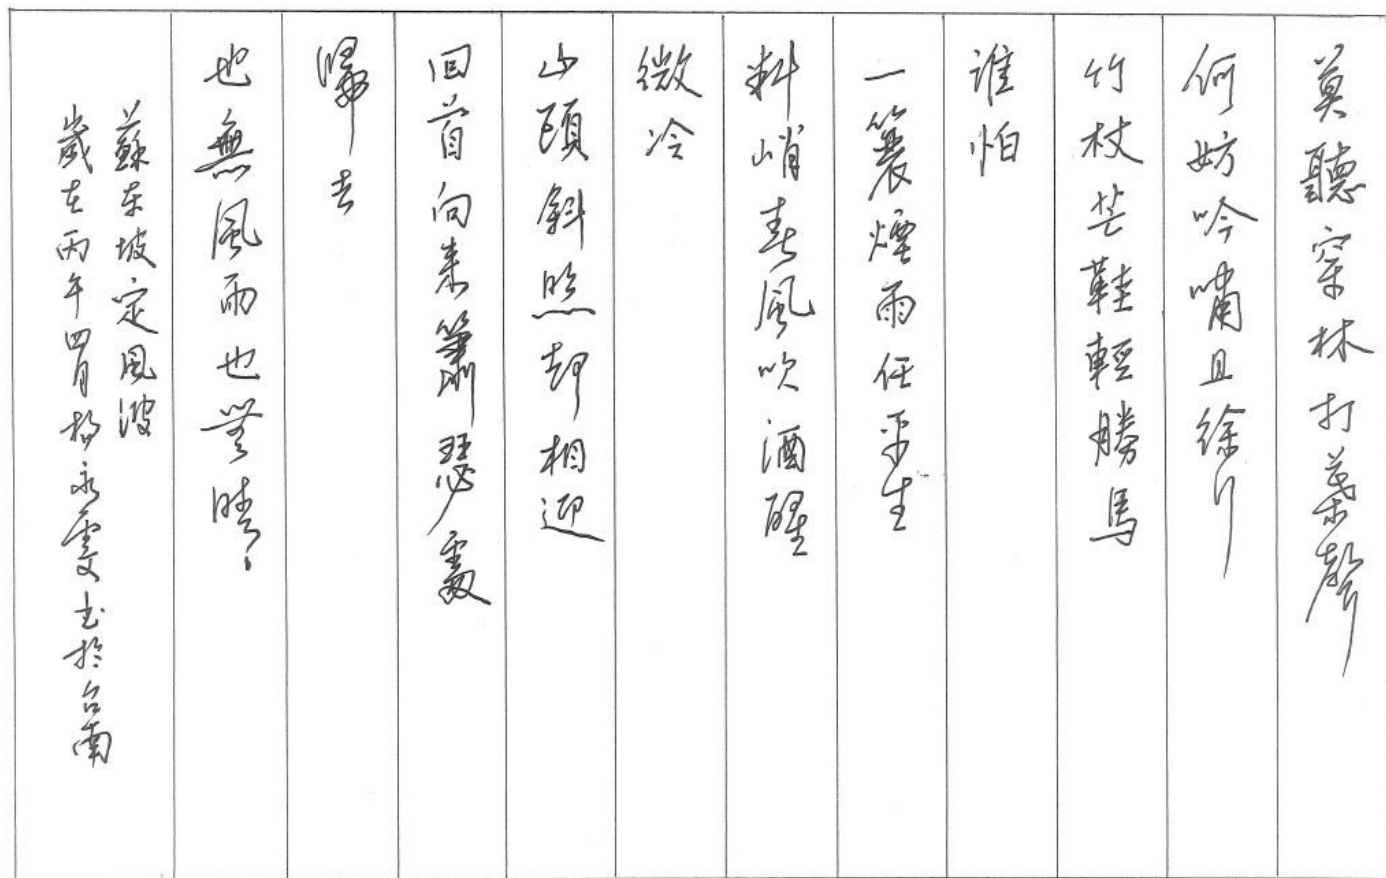 莫聽穿林打葉聲
何妨吟嘯且徐行
竹杖芒鞋輕勝馬
誰怕
一簑煙雨任平生
料峭春風吹酒醒
微冷
山頭斜照却相迎
回首向來簫瑟處
歸去
也無風雨也無晴
蘇東坡定風波
歲在丙午四月楊永雯書於台南